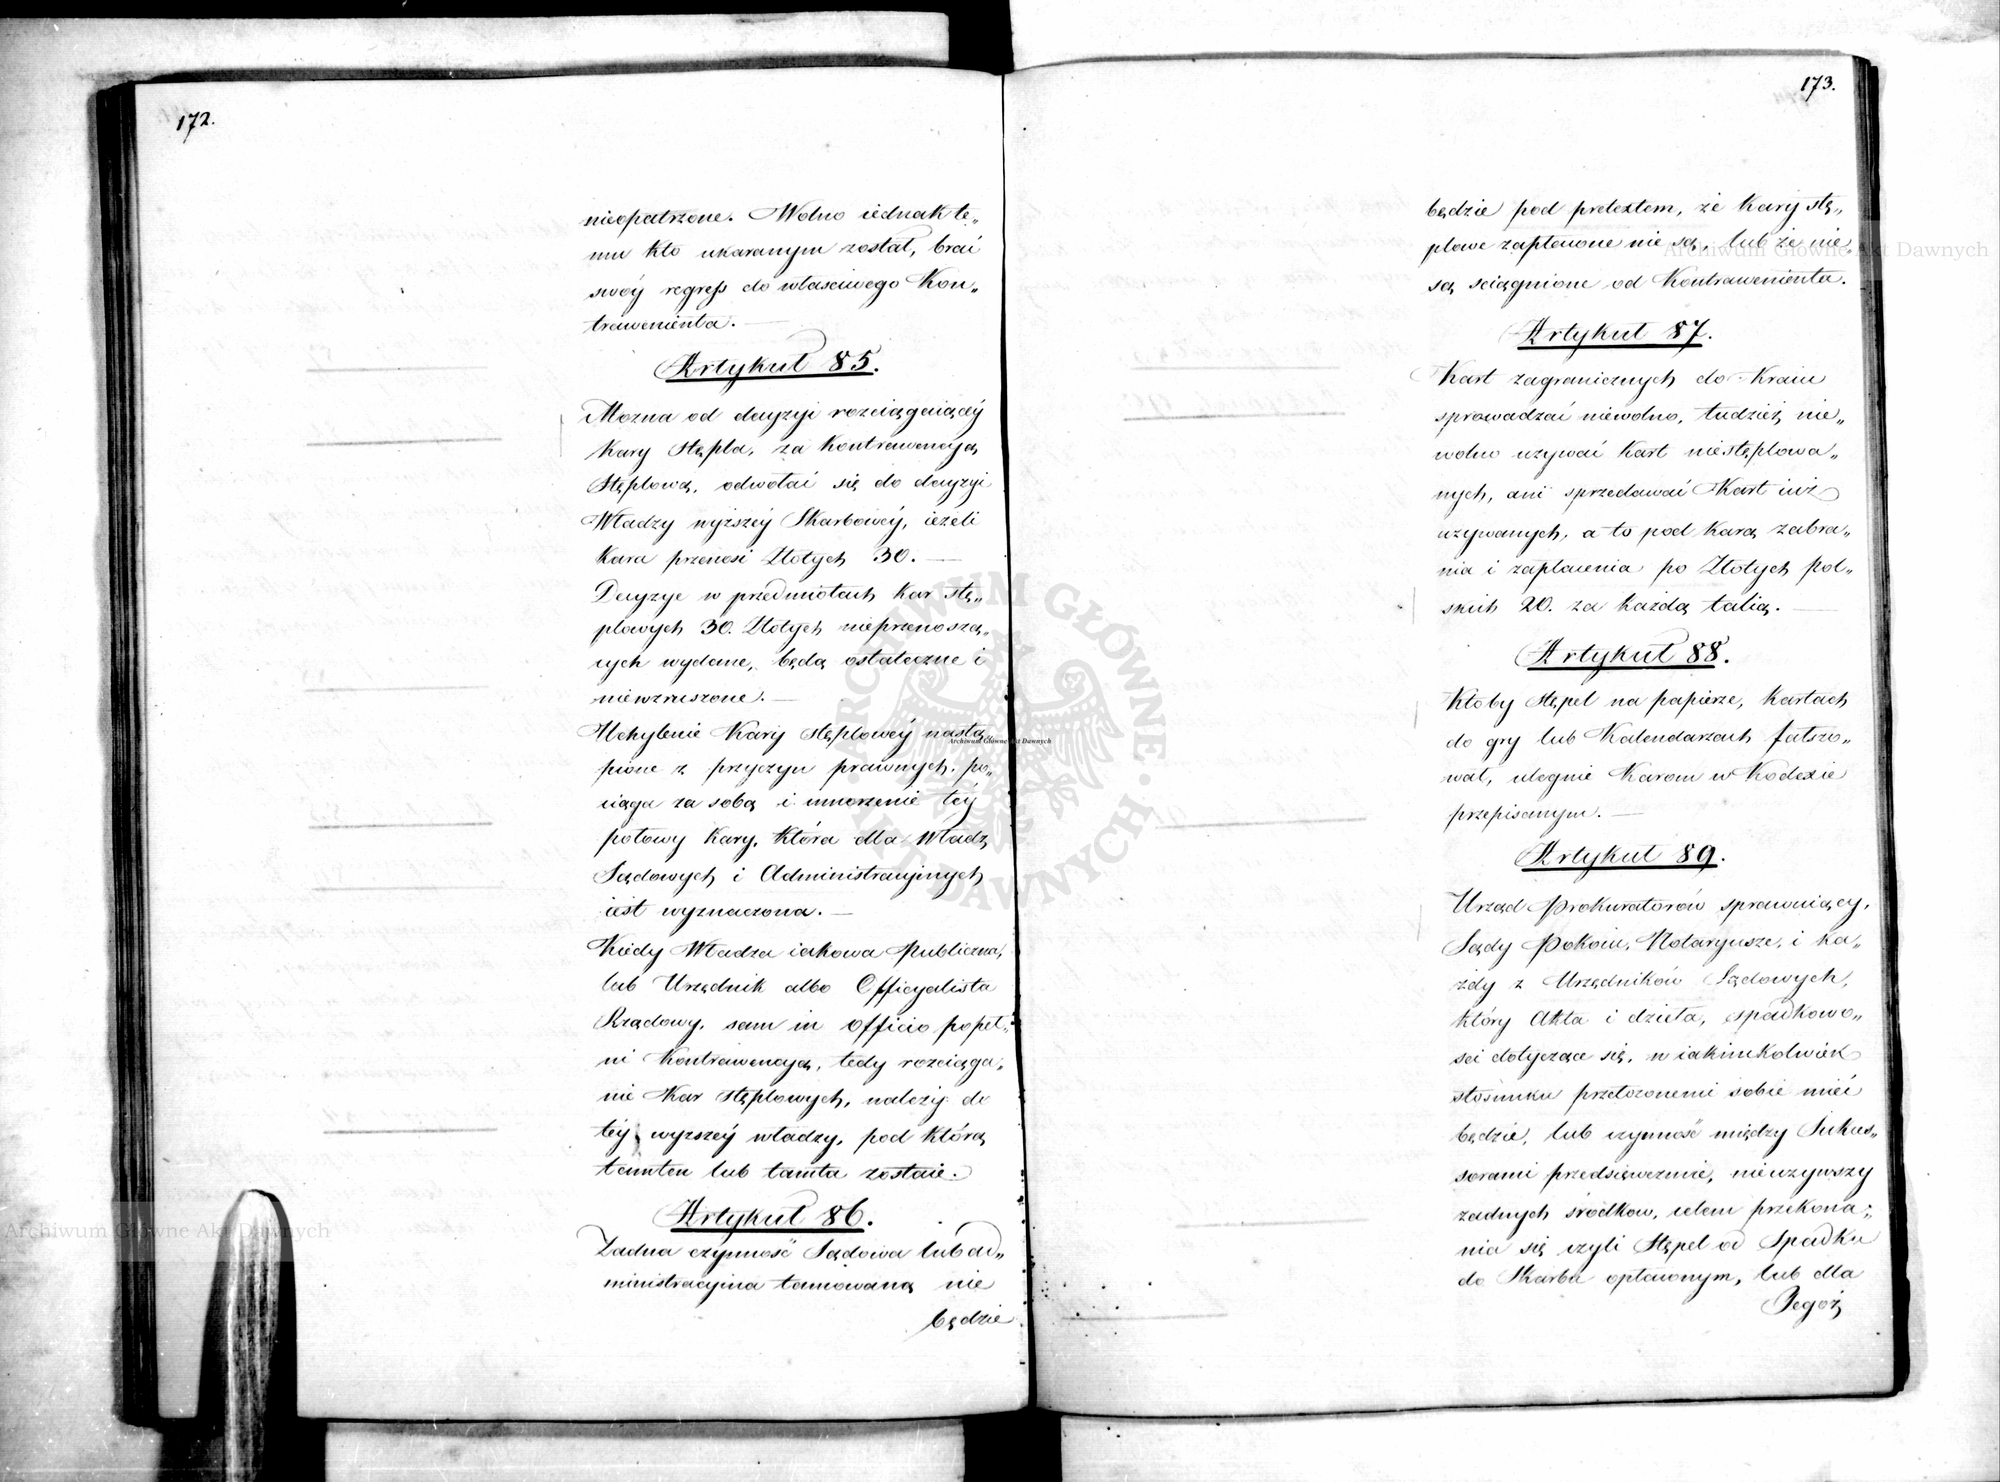 172.
nieopatrzone. Wolno iednak te„
mu kto ukaranym został, brać
swóy regress do właściwego Kon„
trawenienta.
Artykuł 85.
Można od decyzyi rozciągaiącéy
Kary Stępla, za Kontrawencyą
Stęplową, odwołać się do decyzyi
Władzy wyższéy Skarbowéy, ieżeli
Kara przenosi Złotych 30.
Decyzye w przedmiotach Kar stę„
plowych 30. Złotych nieprzenoszą„
cych wydane, będą ostateczne i
niewzruszone.
Uchylenie Kary stęplowéy nastą„
pione z przyczyn prawnych, po„
ciąga za sobą i umorzenie téy
połowy Kary, która dla Władz
Sądowych i Administracyinych
iest wyznaczona.
Kiedy Władza iakowa Publiczna,
lub Urzędnik albo Officyalista
Rządowy, sam in officio popeł„
ni Kontrawencyą, tedy rozciąga„
nie Kar stęplowych, należy do
téy wyższéy władzy, pod którą
tamten lub tamta zostaie.
Artykuł 86.
Żadna czynność Sądowa lub ad„
ministracyina tamowaną nie
będzie
173.
będzie pod pretextem, że Kary stę„
plowe zapłacone nie są, lub że nie
są sciągnione od Kontrawenienta.
Artykuł 87.
Kart zagranicznych do Kraiu
sprowadzać niewolno, tudzież nie„
wolno używać Kart niestęplowa„
nych, ani sprzedawać Kart iuż
używanych, a to pod karą zabra„
nia i zapłacenia po Złotych pol„
skich 20. za każdą talią.
Artykuł 88.
Ktoby stępel na papierze, kartach
do gry lub Kalendarzach fałszo„
wał, ulegnie Karom w Kodexie
przepisanym.
Artykuł 89.
Urząd Prokuratorów sprawuiący,
Sądy Pokoiu, Notaryusze, i ka„
żdy z Urzędników Sądowych,
który Akta i dzieła, spadkowo„
sci dotyczące się, w iakimkolwiek
stosunku przełożonemi sobie mieć
będzie, lub czynność między Sukces„
sorami przedsięweźmie, nie używszy
żadnych środkow, celem przekona„
nia się czyli Stępel od Spadku
do Skarbu opłaconym, lub dla
Tegoż
Archiwum Główne Akt Dawnych
Archiwum Główne Akt Dawnych
Archiwum Główne Akt Dawnych
ARCHIWUM GŁÓWNE AKT DAWNYCH